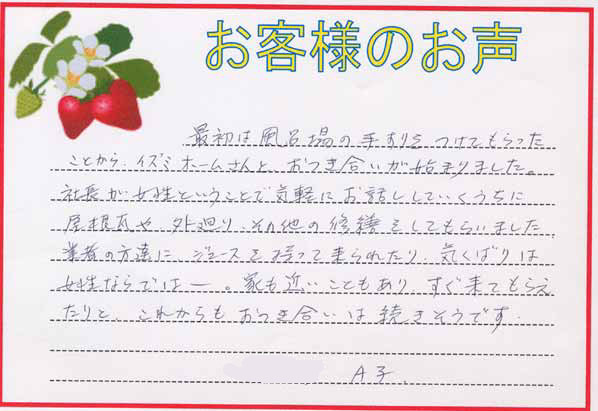 お客様のお声
最初は風呂場の手すりをつけてもらった
ことから、イズミホームさんと、おつき合いが始まりました。
社長が女性ということで気軽にお話ししていくうちに
屋根瓦や外廻り、その他の修繕をしてもらいました
業者の方達に、ジュースを持って来られたり、気くばりは
女性ならではー。家も近いこともあり、すぐ来てもらえ
たりと、これからもおつき合いは続きそうです.
A子.